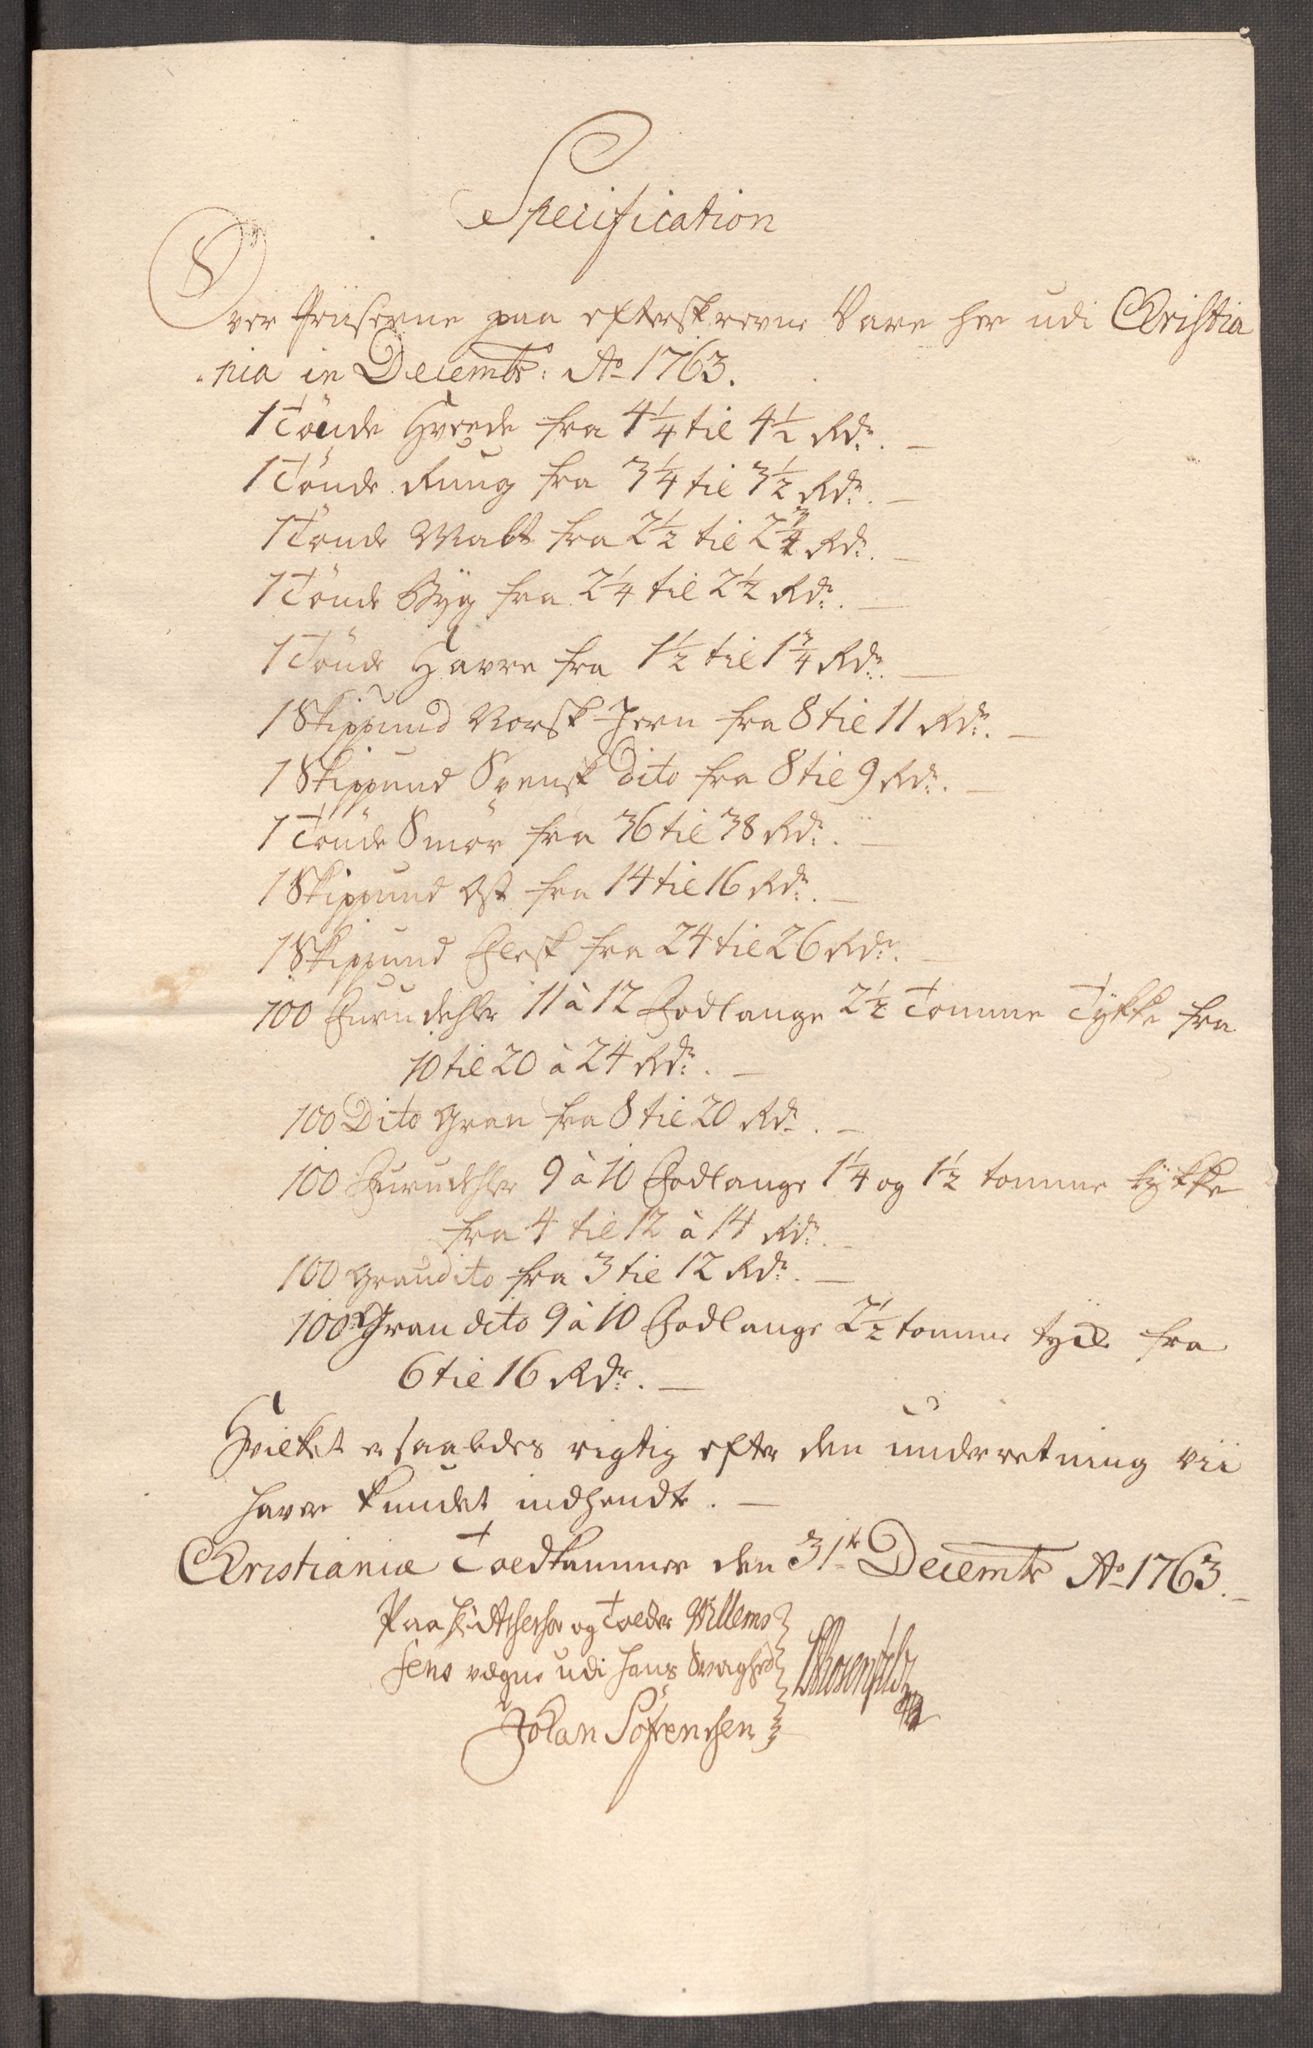 Specification
Over Priiserne paa efterskrevne Vare her udi Christia
nia in Decembr: Ao 1763.
1 Tönde Hvede fra 4 1/4 til 4 1/2 Rdr. —
1 Tönde Rung fra 3 1/4 til 3 1/2 Rdr. —
1 Tönde Malt fra 2 1/2 til 2 3/4 Rdr. —
1 Tönde Byg fra 2 1/4 til 2 1/2 Rdr. —
1 Tönde Havre fra 1 1/2 til 1 3/4 Rdr. —
1 Skippund Norsk Jern fra 8 til 11 Rdr. —
1 Skippund Svensk dito fra 8 til 9 Rdr. —
1 Tönde Smör fra 36 til 38 Rdr. —
1 Skippund Ost fra 14 til 16 Rdr. —
1 Skippund Flesk fra 24 til 26 Rdr. —
100 Furudehler 11 à 12 Fodlange 2 1/2 Tomme Tykke fra
10 til 20 à 24 Rdr. —
100 Dito Gran fra 8 til 20 Rdr. —
100 Furudehler 9 à 10 Fodlange 1 1/4 og 1 1/2 tomme tykke
fra 4 til 12 à 14 Rdr. —
100 Grandito fra 3 til 12 Rdr. —
100 Gran dito 9 à 10 Fodlange 2 1/2 tomme fra
6 til 16 Rdr. —
Hvilket er saaledes rigtig efter den underretning vii
haver kundet indhendte. —
Christiania Toldkammer den 31te Decembr Ao 1763. —
Paa Hr og Tolder Willems
sens vægne udi hans Svaghed
Johan Sörensen